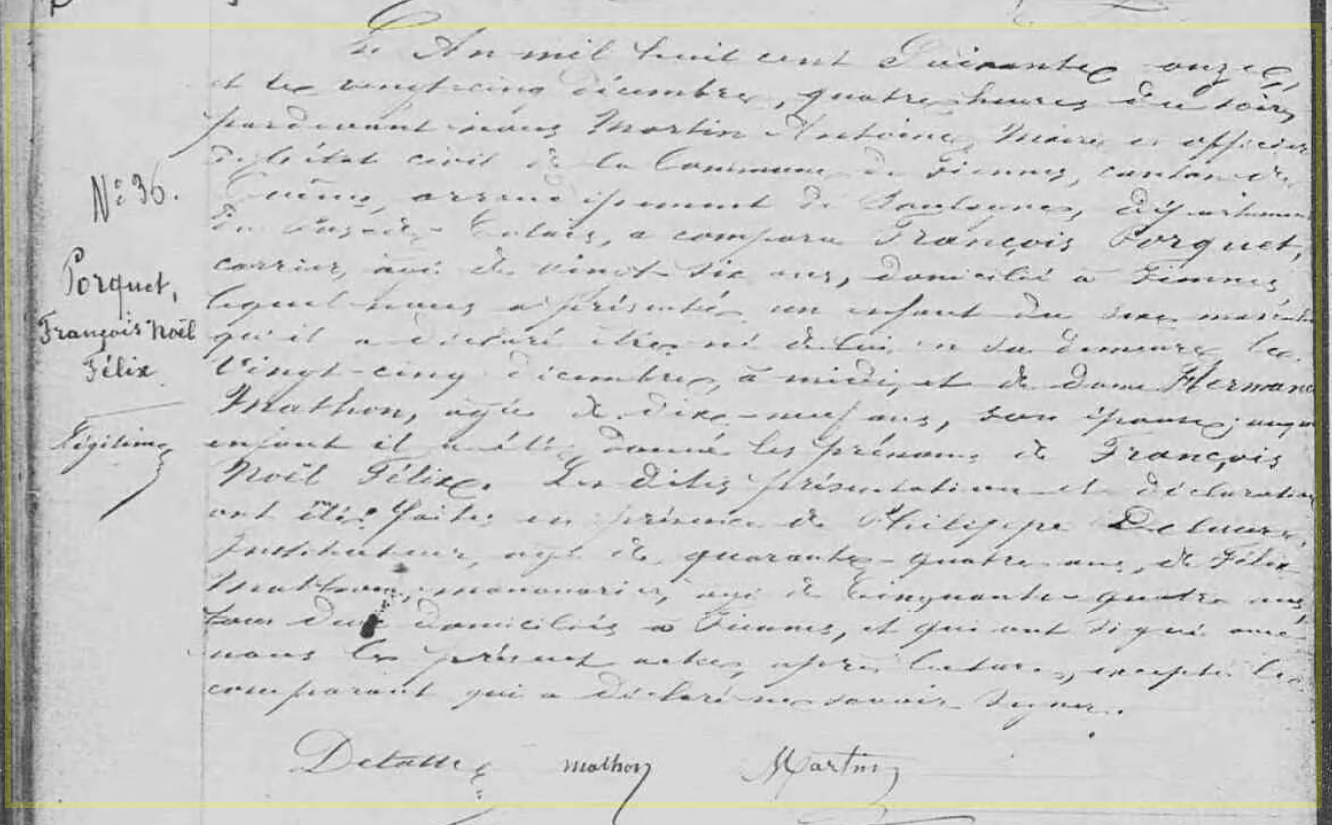 N° 36.
Porquet,
François Noël
Félix
Légitime
L'An mil huit cent Soixante onze,
et le vingt-cinq décembre, quatre heures du soir,
pardevant nous Martin Antoine, Maire et officier
de l'état civil de la Commune de Fiennes, canton de
Guînes, arrondissement de Boulogne, département
du Pas-de-Calais, a comparu François Porquet,
carrier, âgé de vingt-six ans, domicilié à Fiennes
lequel nous a présenté un enfant du sexe masculin
qu'il a déclaré être né de lui en sa demeure, le
Vingt-cinq décembre, à midi, et de dame
Mathon, âgée de dix-neuf ans, son épouse; auquel
enfant il a été donné les prénoms de François
Noël Félix. Les dites présentation et déclaration
ont été faites en présence de Philippe
Instituteur, âgé de quarante-quatre ans, de Félix
Mathon, âgé de Cinquante-quatre ans,
tous deux domiciliés à Fiennes, et qui ont signé avec
nous le présent acte, après lecture, excepté le
comparant qui a déclaré ne savoir signer.
mathon Martin